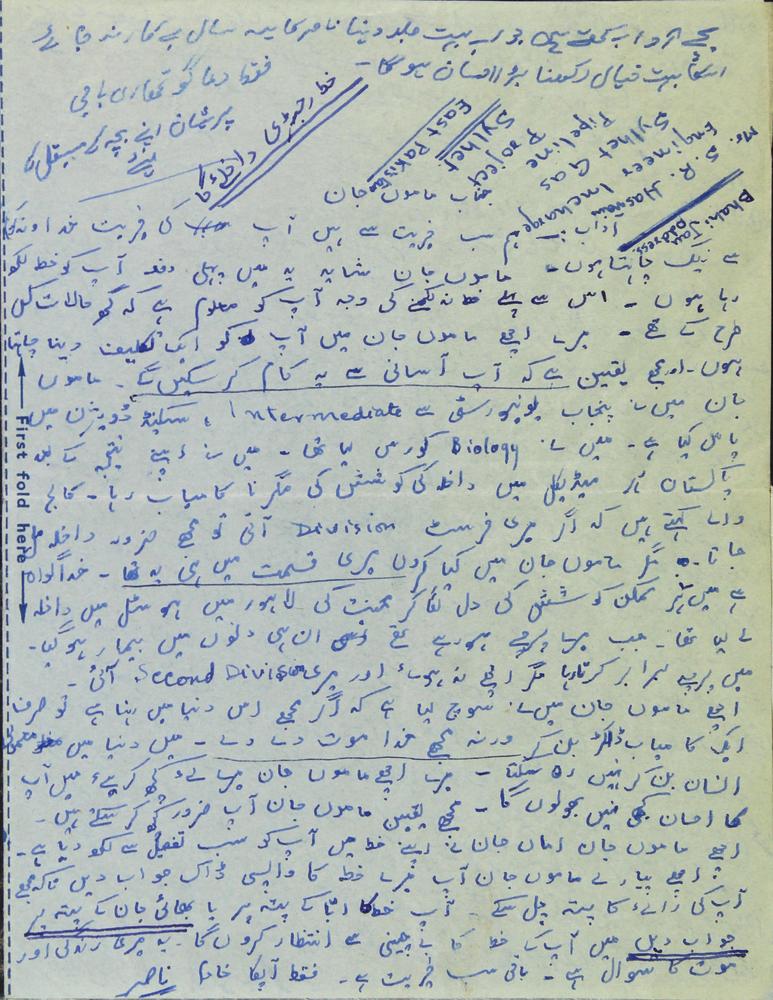 بچے آداب کہتے ہیں جواب بہت جلد دینا ناصر کا یہ سال بے کار نہ جائے
اسکا بہت خیال رکھنا بڑا احسان ہوگا۔
فقط دعا گو تمہاری باجی
پریشان اپنے بچہ کے مستقبل کا
لئے
خط رجسٹری
Bhai Jan
address
Mr. S. R. Hashmi
Engineer Incharge
Sylhet Gas
Pipeline Project
Sylhet
East Pakistan
جناب ماموں جان
آداب۔ ہم سب خیریت سے ہیں آپ کی خیریت خداوند کریم
سے نیک چاہتا ہوں۔ ماموں جان شاید یہ میں پہلی دفعہ آپ کو خط لکھ
رہا ہوں۔ اس سے پہلے خط نہ لکھنے کی وجہ آپ کو معلوم ہے کہ گھر حالات کس
طرح کے تھے۔ میرے اچھے ماموں جان میں آپ کو ایک تکلیف دینا چاہتا
ہوں۔ اور مجھے یقین ہے کہ آپ آسانی سے یہ کام کر سکیں گے۔ ماموں
جان میں نے پنجاب یونیورسٹی سے Intermediate، سکینڈ ڈویژن میں
پاس کیا ہے۔ میں نے Biology کورس لیا تھا۔ میں نے اپنے نتیجہ کے بعد
پاکستان میڈیکل میں داخلہ کی کوشش کی مگر ناکامیاب رہا۔ کالج
والے کہتے ہیں کہ اگر میری فرسٹ Division آتی تو مجھے ضرور داخلہ مل
جاتا۔ مگر ماموں جان میں کیا کروں میری قسمت میں ہی یہ تھا۔ خدا گواہ
ہے میں نے ہر ممکن کوشش کی دل لگا کر محنت کی لاہور میں ہوسٹل میں داخلہ
لے لیا تھا۔ جب میرے پرچے ہو رہے تھے ان ہی دنوں میں بیمار ہو گیا۔
میں پرچے برابر کرتا رہا مگر اچھے نہ ہوئے اور پھر Second Division آئی۔
اچھے ماموں جان میں نے سوچ لیا ہے کہ اگر مجھے اس دنیا میں رہنا ہے تو صرف
ایک کامیاب ڈاکٹر بن کر ورنہ مجھے خدا موت دے دے۔ میں دنیا میں معمولی
انسان بن کر نہیں رہ سکتا۔ میرے اچھے ماموں جان میرے لئے کچھ کریئے میں آپ
کا احسان کبھی نہیں بھولوں گا۔ مجھے یقین ماموں جان آپ ضرور کچھ کر سکتے ہیں۔
اچھے ماموں جان اماں جان نے اپنے خط میں آپ کو سب تفصیل سے لکھ دیا ہے۔
اچھے پیارے ماموں جان آپ میرے خط کا واپسی ڈاک جواب دیں تاکہ مجھے
آپ کی رائے کا پتہ چل سکے۔ آپ خط ابا کے پتہ پر یا بھائی جان کے پتہ پر
جواب دیں میں آپ کے خط کا بے چینی سے انتظار کروں گا۔ یہ میری زندگی اور
موت کا سوال ہے۔ باقی سب خیریت ہے۔ فقط آپکا خادم ناصر
First fold here